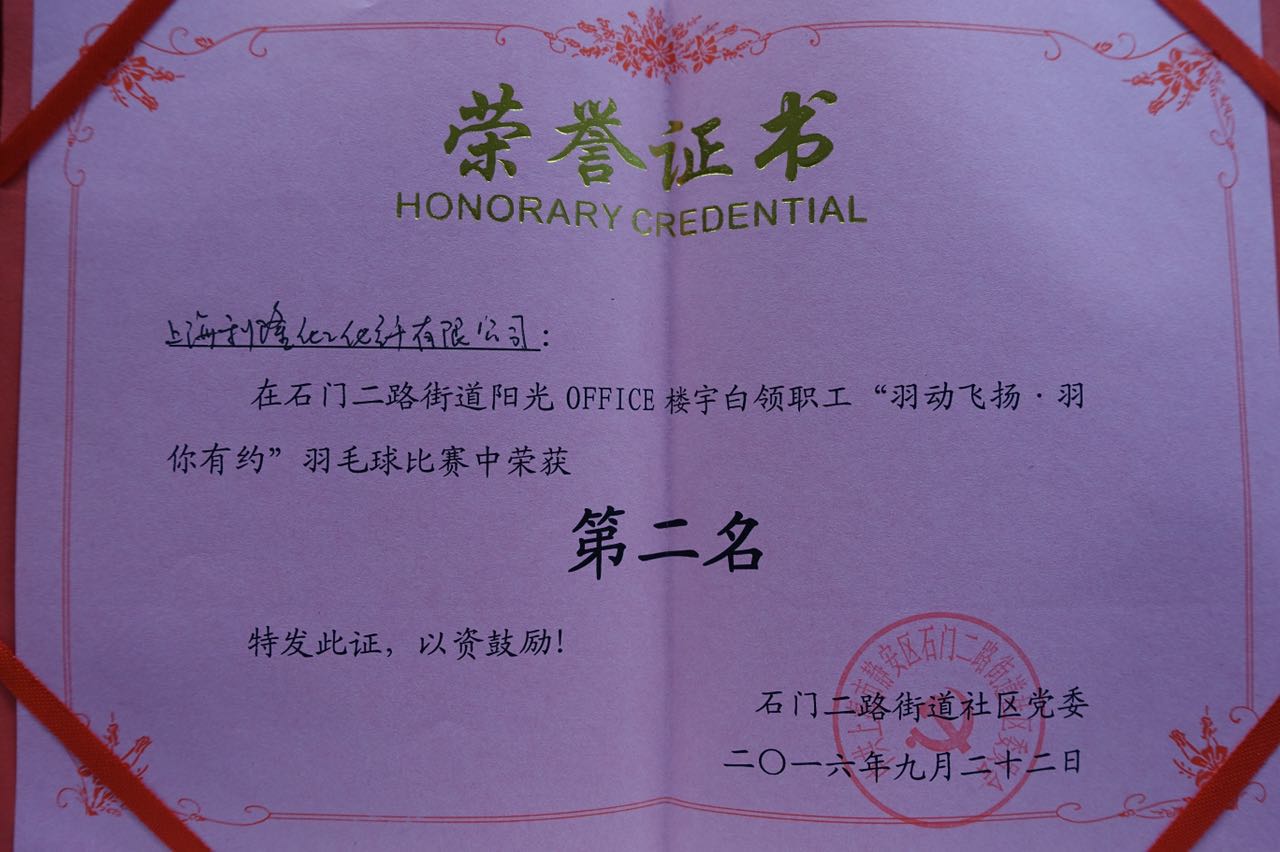 荣誉证书
HONORARY CREDENTIAL
上海利隆化工化纤有限公司：
在石门二路街道阳光 OFFICE 楼宇白领职工“羽动飞扬·羽
你有约”羽毛球比赛中荣获
第二名
特发此证，以资鼓励！
石门二路街道社区党委
二〇一六年九月二十二日